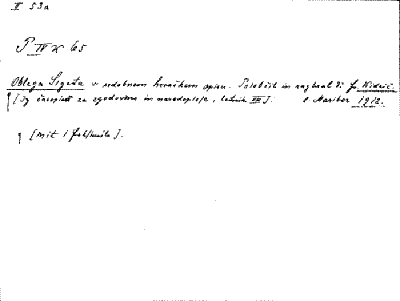 II 53a
P IV x 65
Oblega Sigeta v sodobnem hrvačkem opisu. Priobčil in razložil Dr. Fr. Kidrič.
[Iz časopisa za zgodovino in narodopisje, letnik VIII]. Maribor 1912.
[Mit 1 Faksimile].